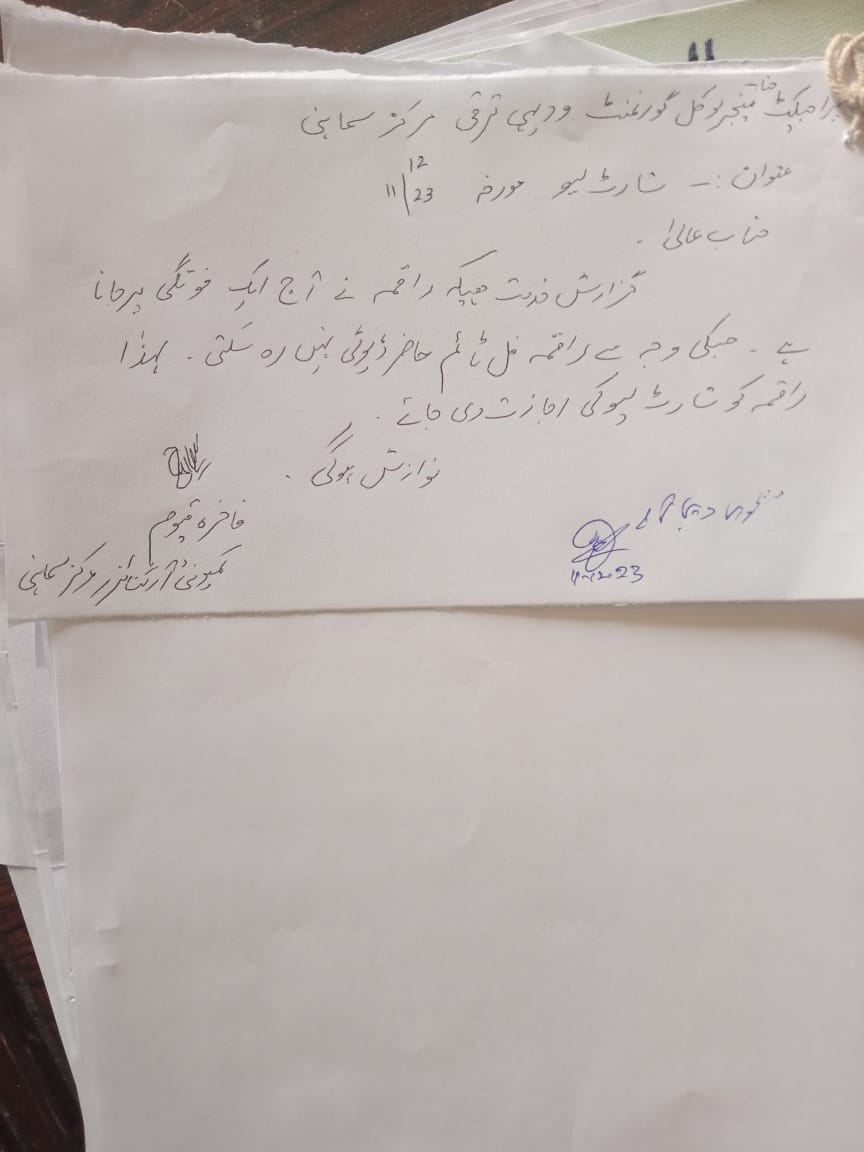 جناب
پراجیکٹ منیجر لوکل گورنمنٹ و دیہی ترقی مرکز سماہنی
عنوان :- شارٹ لیو مورخہ 11/12 23
جناب عالیٰ.
گزارش خدمت ہیکہ راقمہ نے آج ایک فوتگی پر جانا
ہے ۔ جسکی وجہ سے راقمہ فل ٹائم حاضر ڈیوٹی نہیں رہ سکتی ۔ لہذٰا
راقمہ کو شارٹ لیو کی اجازت دی جائے ۔
نوازش ہوگی ۔
فاخرہ قیوم
کمیونٹی آرگنائزر مرکز سماہنی
منظوری دی جاتی ہے
11-12-23